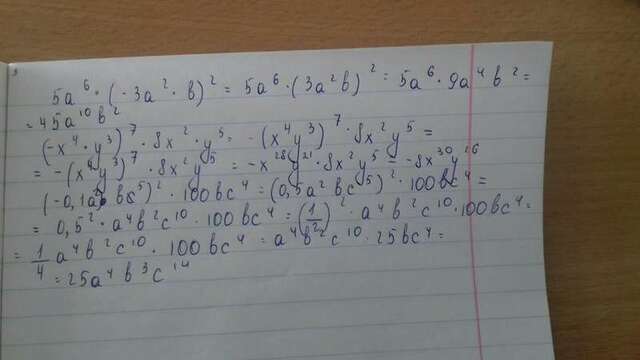 5a⁶ · (-3a² · b)² = 5a⁶ · (3a²b)² = 5a⁶ · 9a⁴b² =
= 45a¹⁰b²
(-x⁴ · y³)⁷ · 8x² · y⁵ = -(x⁴y³)⁷ · 8x²y⁵ =
= -(x⁴y³)⁷ · 8x²y⁵ = -x²⁸y²¹ · 8x²y⁵ = -8x³⁰y²⁶
bc⁵)² · 100bc⁴ = (0,5a²bc⁵)² · 100bc⁴ =
= 0,5² · a⁴b²c¹⁰ · 100bc⁴ = (1/2)² · a⁴b²c¹⁰ · 100bc⁴ =
= 1/4 a⁴b²c¹⁰ · 100bc⁴ = a⁴b²c¹⁰ · 25bc⁴ =
= 25a⁴b³c¹⁴